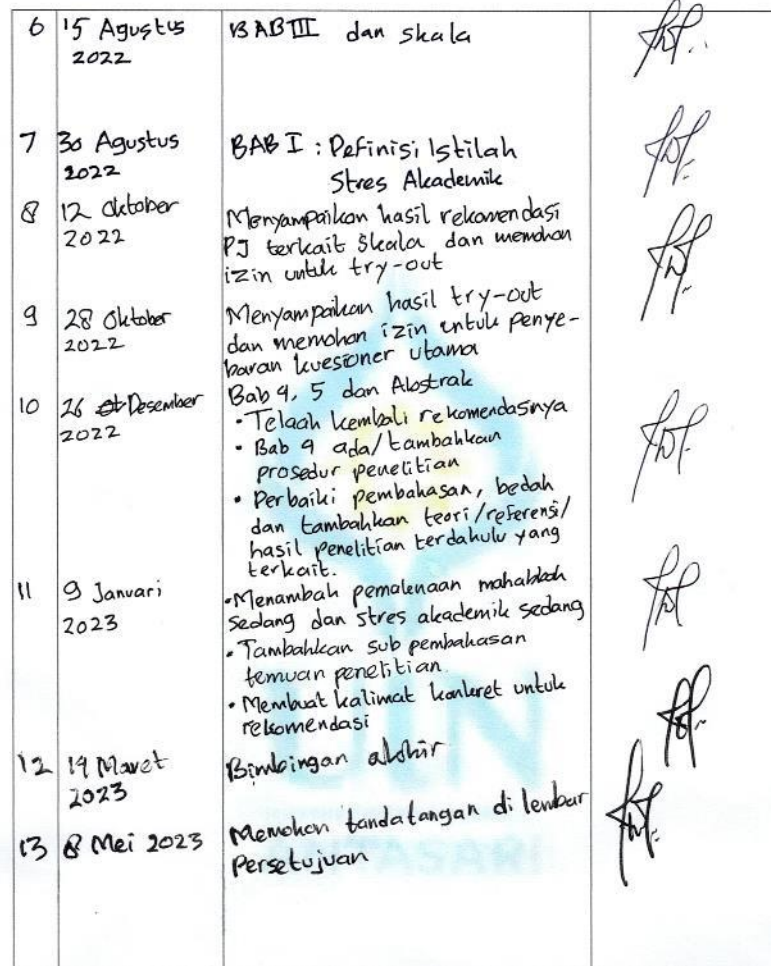 6 15 Agustus BAB III dan skala
2022
7 30 Agustus BAB I : Definisi Istilah
2022 Stres Akademik
8 12 Oktober Menyampaikan hasil rekomendasi
2022 PJ terkait skala dan memohon
izin untuk try-out
9 28 Oktober Menyampaikan hasil try-out
2022 dan memohon izin untuk penye-
baran kuesioner utama
10 26 Desember Bab 4, 5 dan Abstrak
2022 • Telaah kembali rekomendasnya
• Bab 4 ada/tambahkan
prosedur penelitian
• Perbaiki pembahasan, bedah
dan tambahkan teori/referensi/
hasil penelitian terdahulu yang
terkait.
11 9 Januari • Menambah pemaknaan mahabbah
2023 sedang dan stres akademik sedang
• Tambahkan sub pembahasan
temuan penelitian
• Membuat kalimat konkret untuk
rekomendasi
12 Maret Bimbingan akhir
2023
13 8 Mei 2023 Memohon tandatangan di lembar
Persetujuan
UIN
ANTASARI